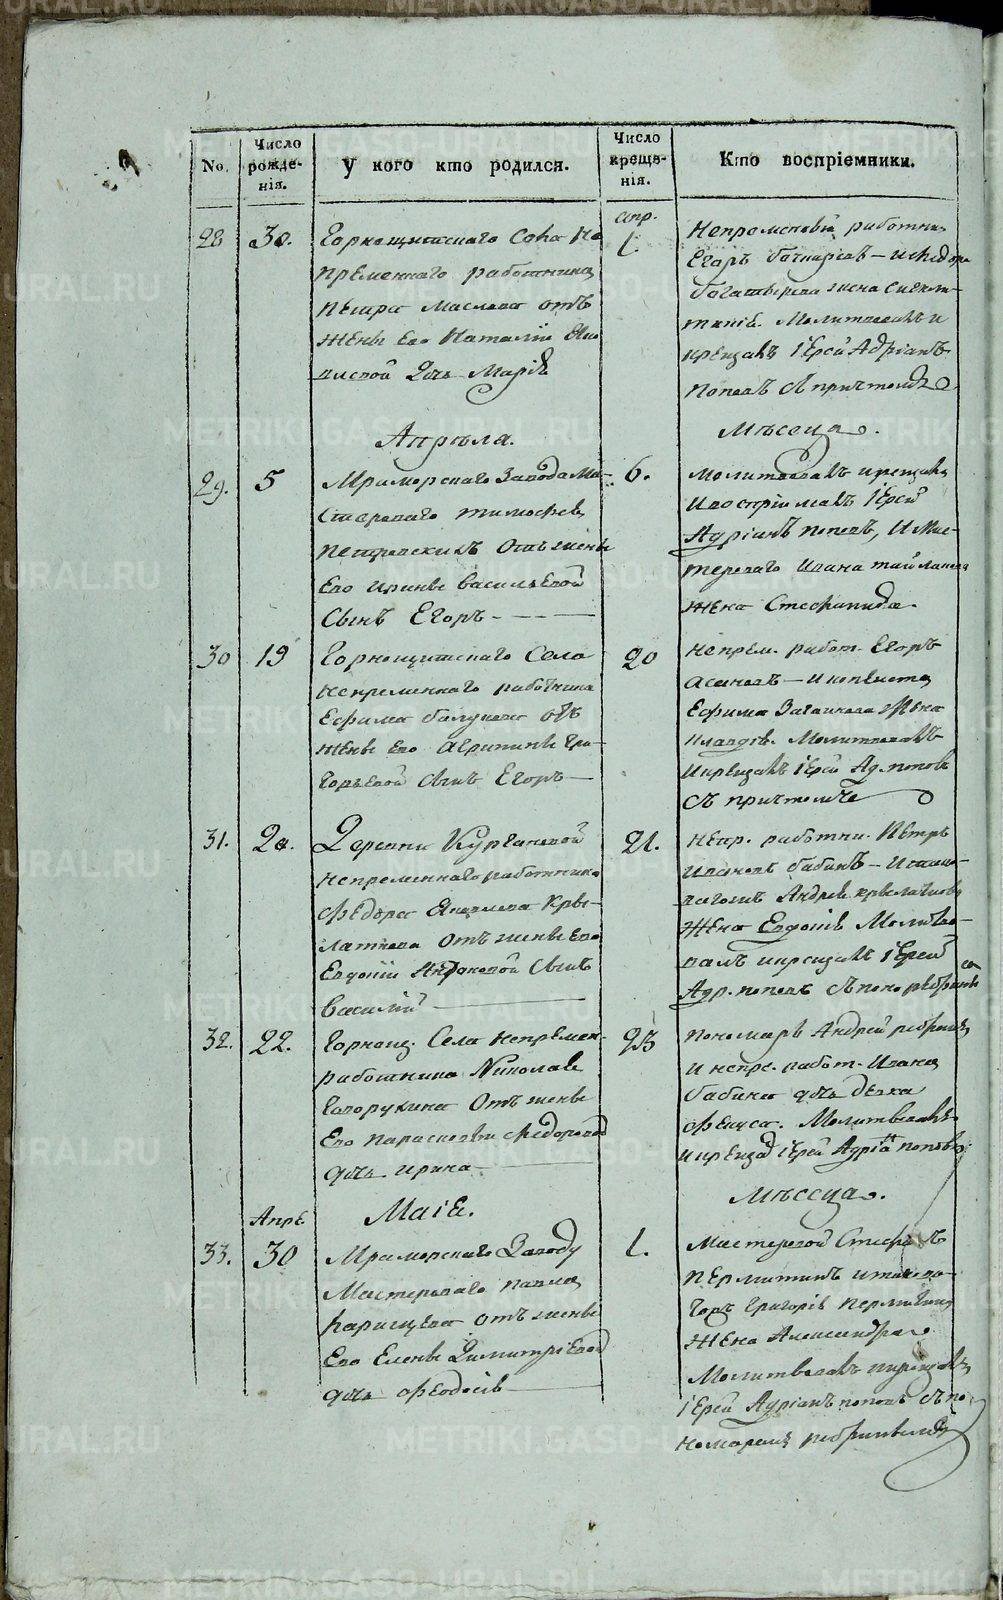 METRIKI.GASO-URAL.RU
No.
Число рожденія.
У кого кто родился.
Число крещенія.
Кто воспріемники.
28
30.
Горнощитскаго Села Не
пременнаго работника
Петра Маслова отъ
жены его Наталіи
дочь Марія
апр.
1.
Непременный работник
Егоръ
жена
Молитвовалъ и
крещалъ Іерей Адріанъ
Поповъ съ причтомъ
Апреля.
Мѣсеца.
29.
5
Мраморскаго Завода Ма-
стероваго Тимофея
Петровскихъ отъ жены
Его Ирины Васильевой
Сынъ Егоръ
6.
Молитвовалъ крещалъ
И воспріималъ Іерей
Адріанъ Поповъ, И Мас-
тероваго Ивана
жена Стефанида.
30
19
Горнощитскаго Села
непременнаго работника
Ефима отъ
жены его Агрипины Гри-
горьевой Сынъ Егоръ
20
Непрем. работ. Егоръ
Ефима жена
Молитвовалъ
И крещалъ Іерей Ад. Поповъ
съ причтомъ
31.
20.
Деревни Кургановой
непременнаго работника
Федора Яковлева Кры-
латкова отъ жены его
Евдокіи Сынъ
Василій
21.
Непр. работни. Петръ
Ивановъ Бабинъ
Андрея Крылаткова
жена Евдокія Молитво-
валъ и крещалъ Іерей
Адр. Поповъ съ
32.
22.
Горнощ. Села Непремен.
работника Николая
Говорухина Отъ жены
Его Парасковьи Федоровой
дочь Ирина
23
Пономарь Андрей
и непре. работ. Ивана
Бабина дочь девка
Молитвовалъ
и крещал Іерей Адріанъ Поповъ
Маія.
Мѣсеца.
33.
Апре.
30
Мраморскаго Заводу
Мастероваго Павла
отъ жены
Его Елены Димитріевой
дочь Феодосія
1.
Мастеровой Стефанъ
Пермитинъ
Григорія Пермитина
жена Александра
Молитвовалъ и крещалъ
Іерей Адріанъ Поповъ съ по-
номаремъ